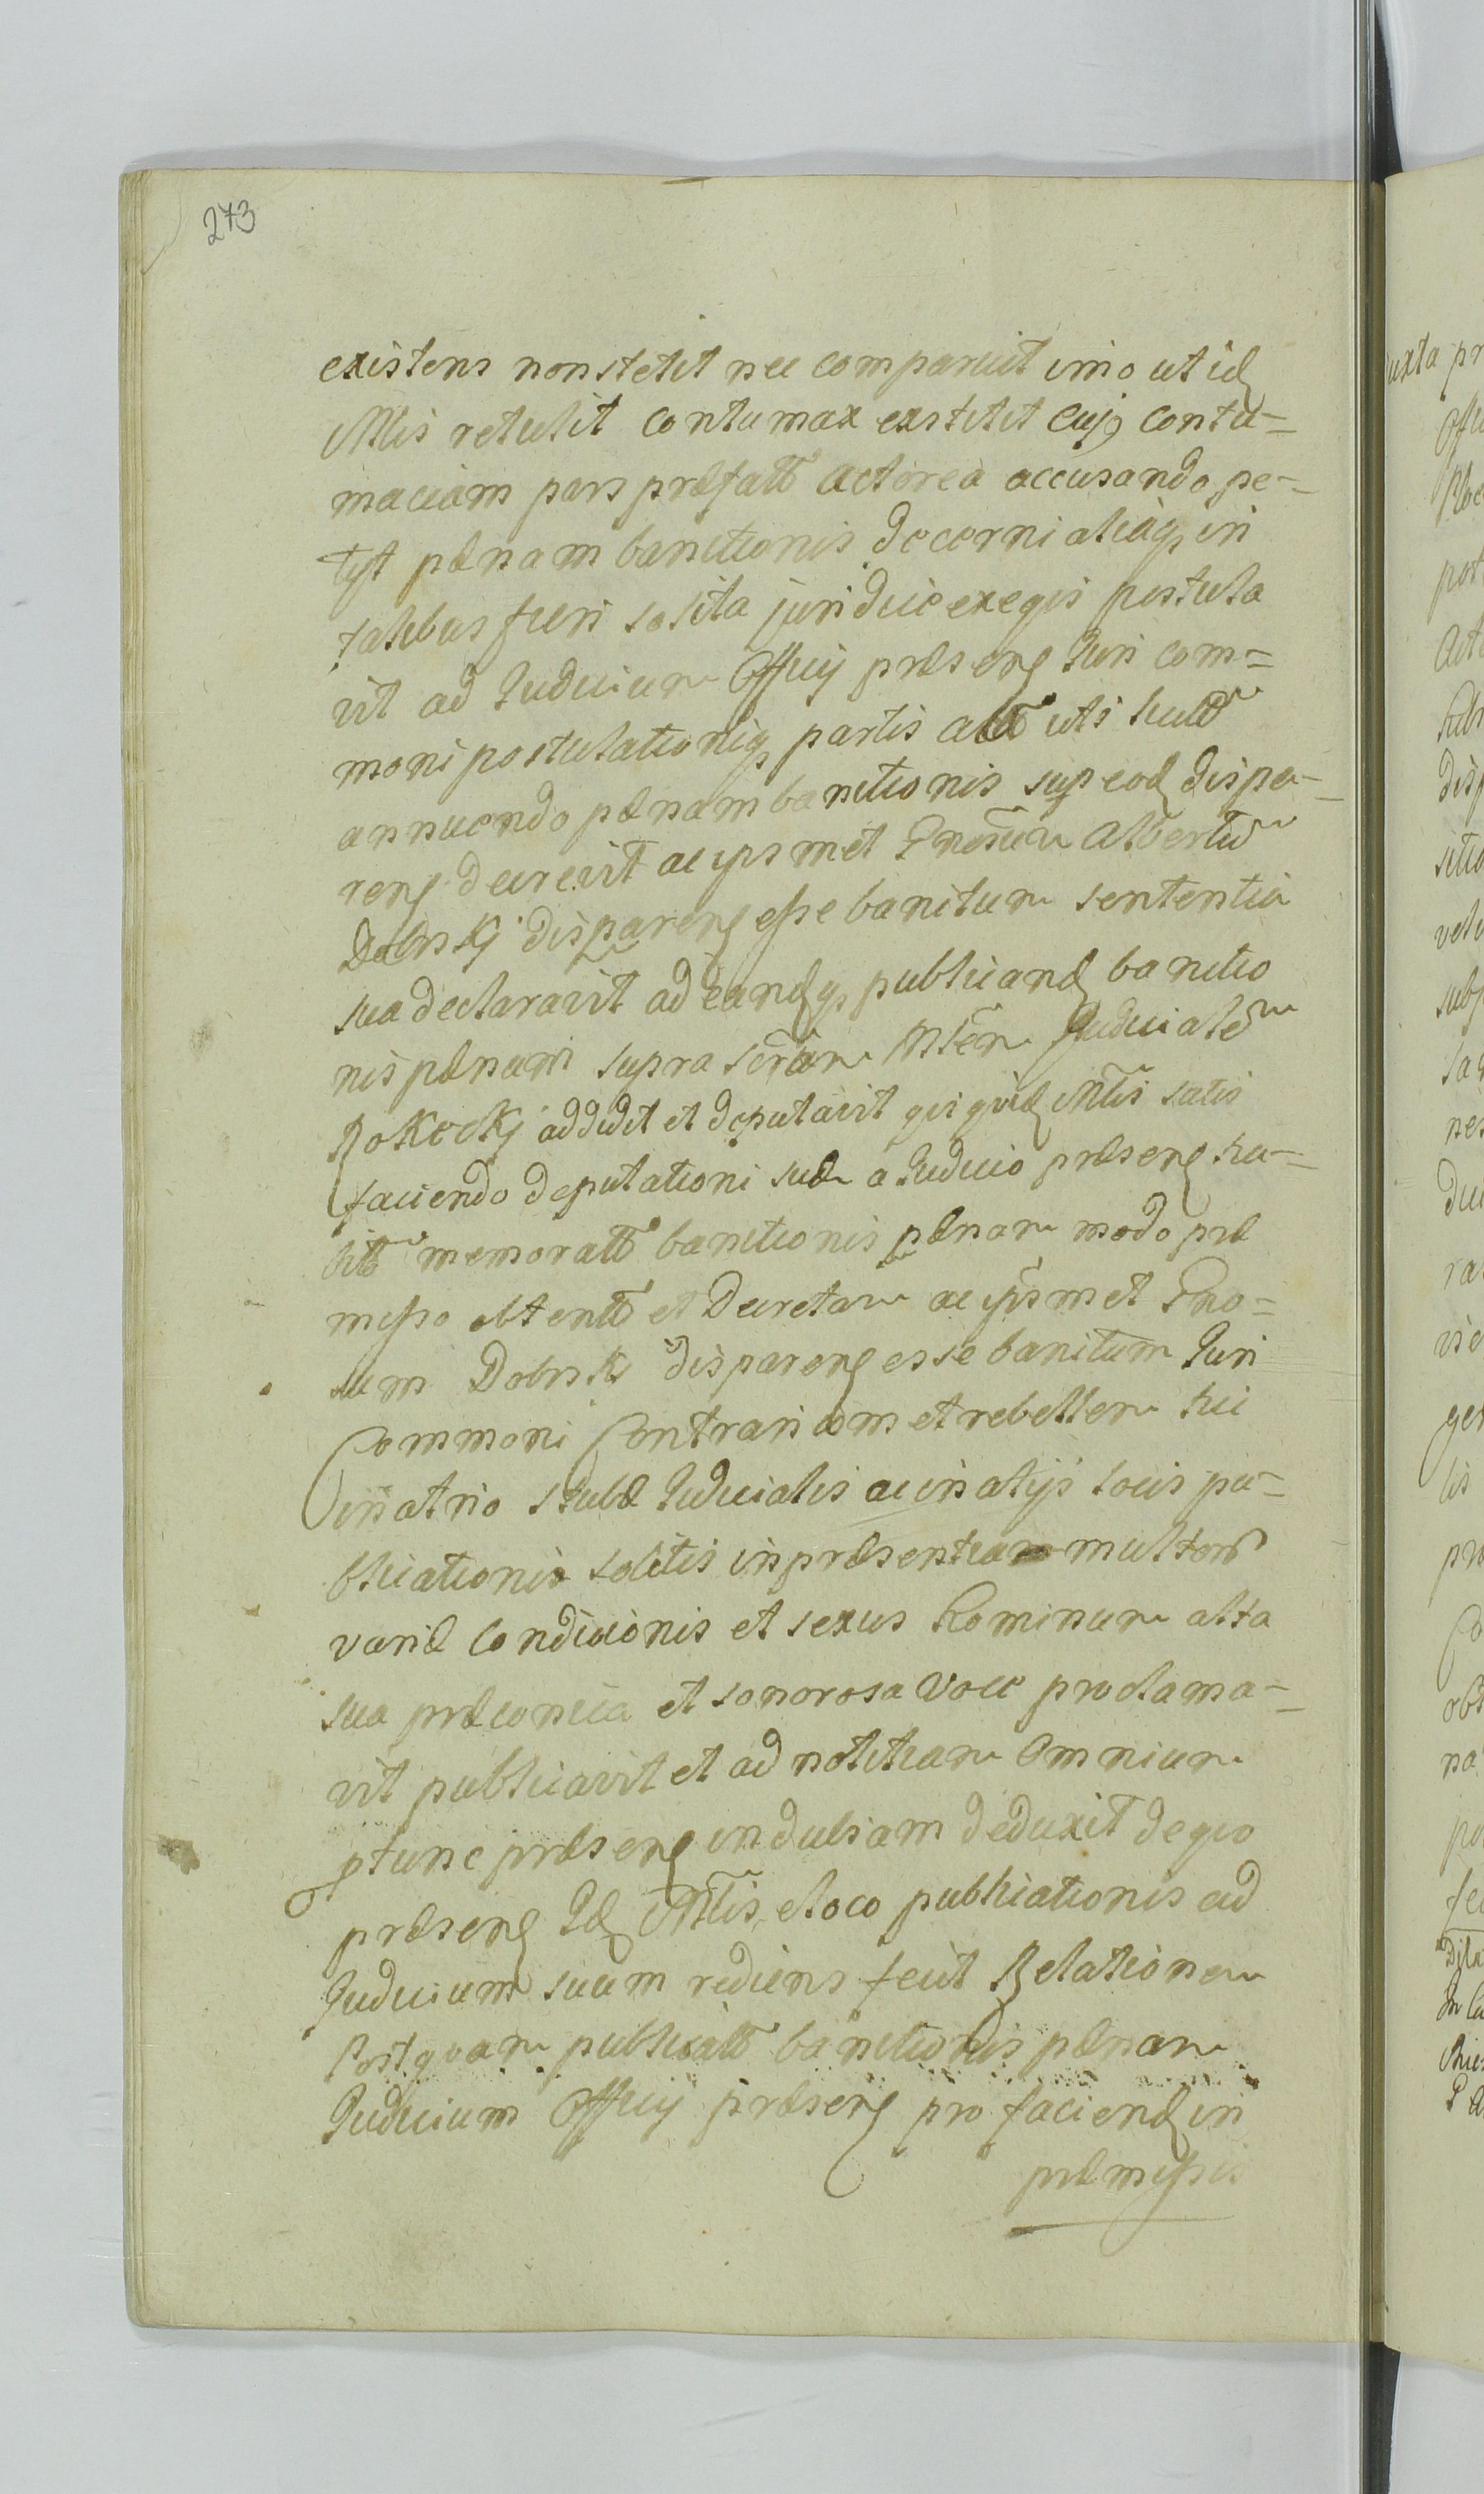 273
existens non stetit nec comparuit imo ut id
Mlis retulit contumax exstitit cujq contu=
maciam pars præfatt actorea accusando pe=
tyt pænam banitionis decerni aliaq in
talibus fieri solita juridice exeqvi postula
vit ad Judicium Officij præseng Juri com=
moni postulationiq partis att uti
annuendo pænam banitionis sup eod dispa=
reng decrevit ac ipsmet Gnosum Albertum
Dobrskj dispareng esse banitum sententia
sua declaravit ad eandq publicand banitio
nis pænam supra scram Mlem Judicialem
Rokockj addidit et deputavit qui quid Mlis satis
faciendo deputationi suæ a Judicio præseng ha=
bitt memoratt banitionis pænam modo præ
misso obtentt et Decretam ac ipsmet Gno=
sum Dobrsk dispareng esse banitum Juri
Commoni Contrarium et rebellem hic
in atrio stubæ Judicialis ac in alijs locis pu=
blicationis solitis in præsentiam multor
variæ Condicionis et sexus hominum alta
sua præconica et sonorosa voce proclama=
vit publicavit et ad notitiam omnium
ptunc præseng indubiam deduxit de quo
præseng Id Mlis e loco publicationis ad
Judicium suum rediens fecit Relationem
Post qvam publicatt banitionis pænam
Judicium Officij præseng pro faciend in
præmissis
uxta pr